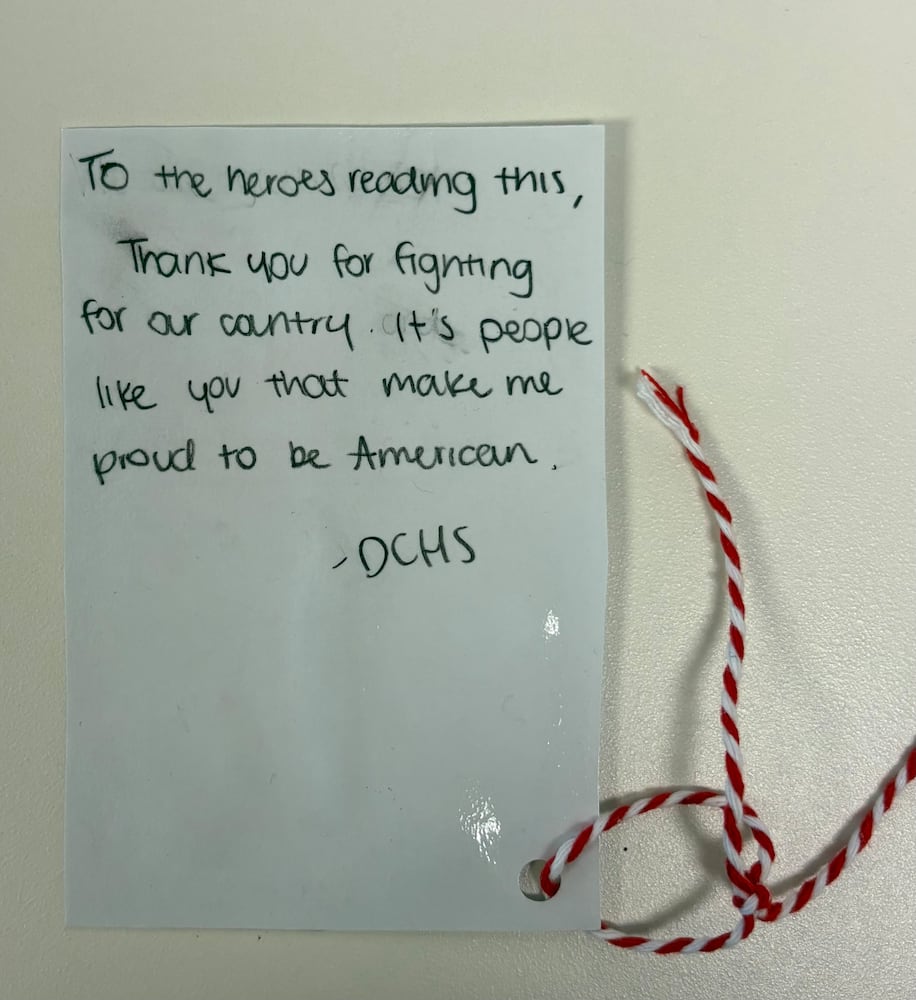 To the heroes reading this,
Thank you for fighting
for our country. It's people
like you that make me
proud to be American.
-DCHS